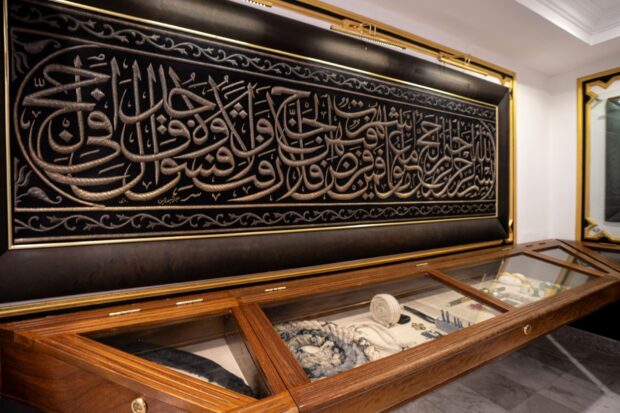 بسم الله الرحمن الرحيم الحج أشهر معلومات فمن فرض فيهن الحج فلا رفث ولا فسوق ولا جدال في الحج